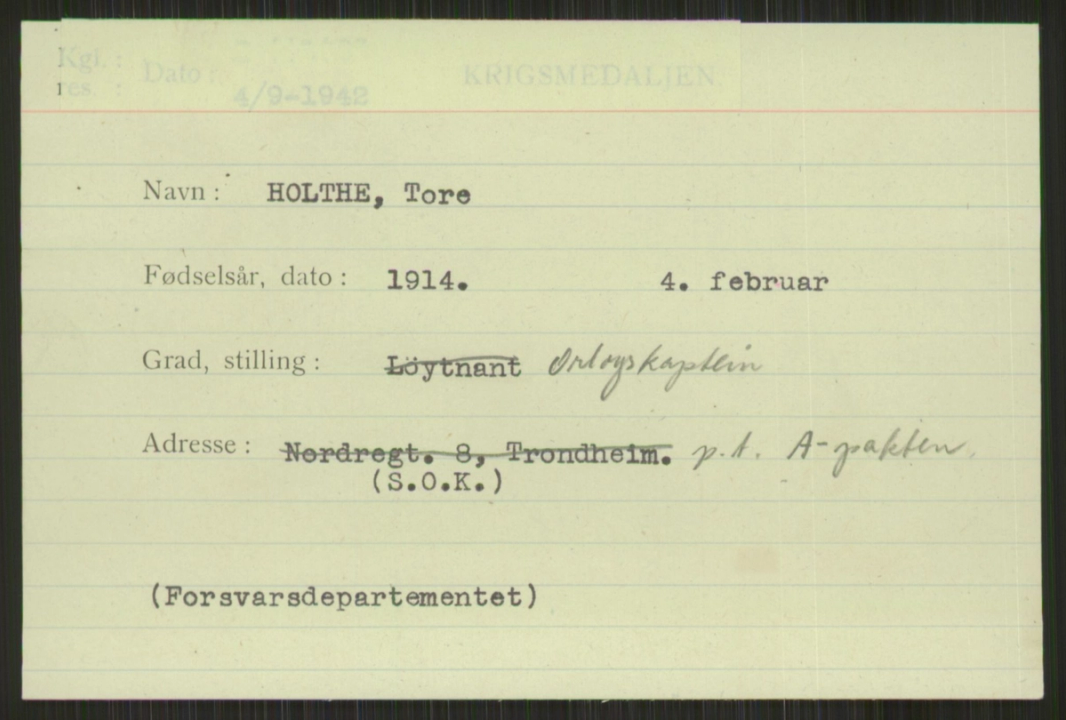 Kgl. :
res. : Dato : 4/9-1942 KRIGSMEDALJEN
Navn : HOLTHE, Tore
Fødselsår, dato : 1914. 4. februar
Grad, stilling : Löytnant Orlogskaptein
Adresse : Nordregt. 8, Trondheim. p.t. A-pakten.
(S.O.K.)
(Forsvarsdepartementet)